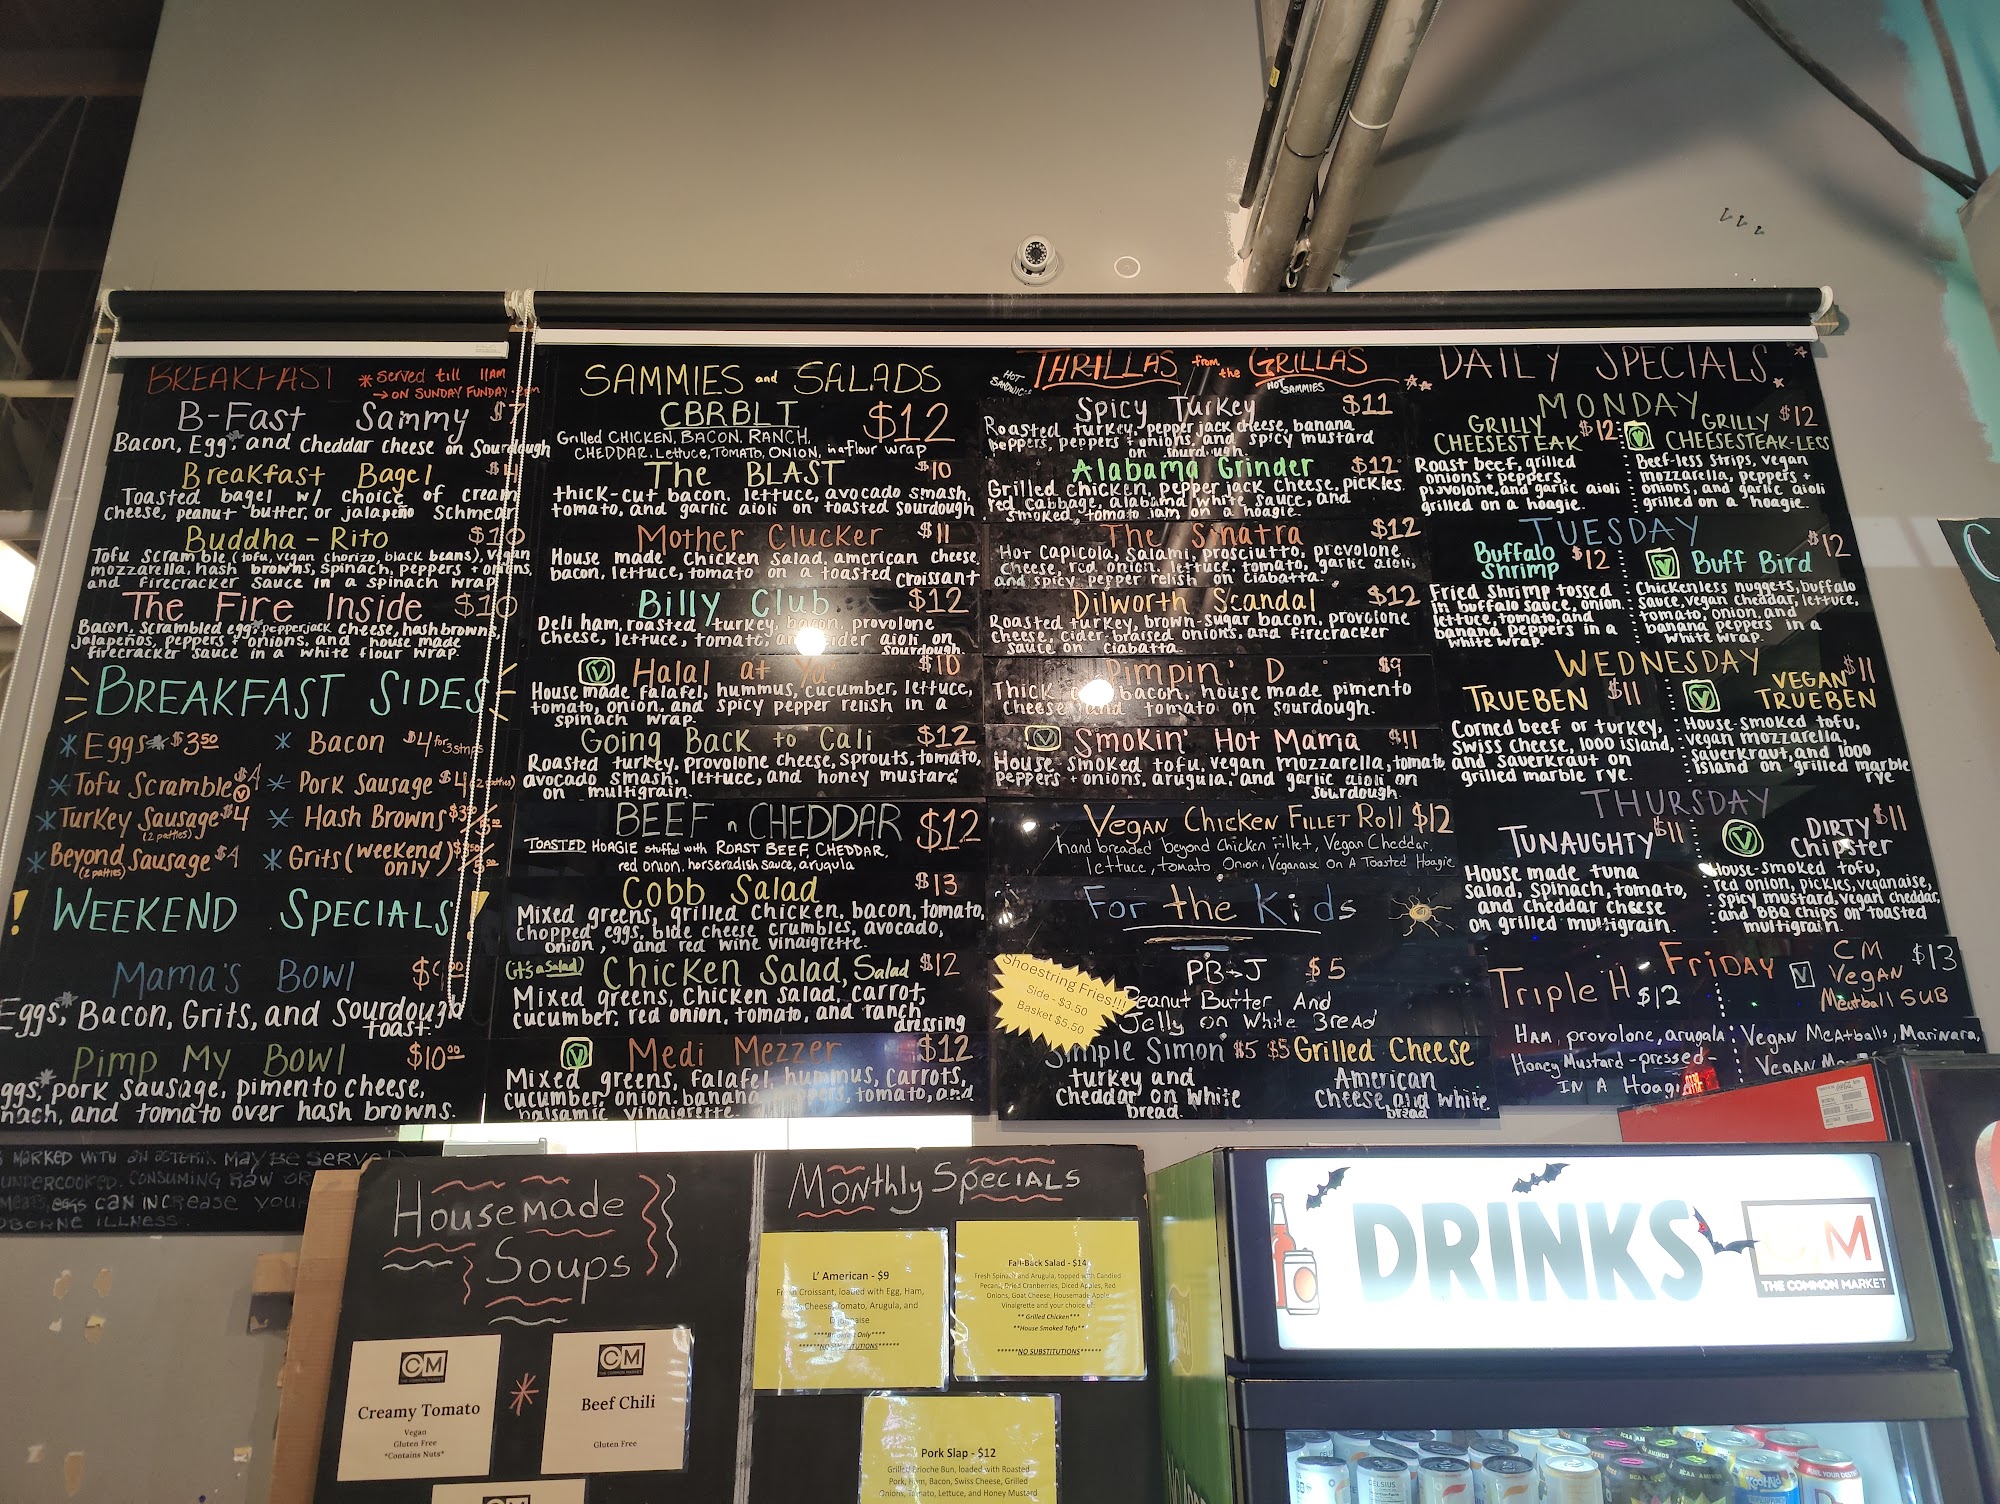 BREAKFAST
* Served till 11AM
→ on SUNDAY FUNDAY
B-Fast Sammy $7
Bacon, Egg*, and Cheddar cheese on Sourdough
Breakfast Bagel $4
Toasted bagel w/ choice of cream
cheese, peanut butter, or jalapeño Schmear
Buddha-Rito $10
Tofu Scramble (tofu, vegan chorizo, black beans), vegan
mozzarella, hash browns, spinach, peppers + onions,
and firecracker sauce in a spinach wrap
The Fire Inside $10
Bacon, scrambled egg*, pepperjack cheese, hashbrowns,
jalapeños, peppers + onions, and house made
firecracker sauce in a white flour wrap.
BREAKFAST SIDES
* Eggs* $3.50
* Bacon $4 for 3 strips
* Tofu Scramble $4 V
* Pork Sausage $4 (2 patties)
* Turkey Sausage $4
(2 patties)
* Hash Browns
* Beyond Sausage $4
(2 patties)
* Grits (weekend
only)
! WEEKEND SPECIALS !
MAMA'S BOWL
Eggs*, Bacon, Grits, and Sourdough
toast.
PIMP MY BOWL $10.00
ggs*, pork sausage, pimento cheese,
nach, and tomato over hash browns.
SAMMIES and SALADS
CBRBLT $12
Grilled CHICKEN, BACON, RANCH,
CHEDDAR, Lettuce, TOMATO, ONION, in a flour wrap
The BLAST $10
thick-cut bacon, lettuce, avocado smash,
tomato, and garlic aioli on toasted sourdough
Mother Clucker $11
House made chicken salad, american cheese
bacon, lettuce, tomato on a toasted croissant
Billy Club $12
Deli ham, roasted turkey, bacon, provolone
cheese, lettuce, tomato, and cider aioli on
sourdough
V Halal at Ya' $10
House made falafel, hummus, cucumber, lettuce,
tomato, onion, and spicy pepper relish in a
spinach wrap.
Going Back to Cali $12
Roasted turkey, provolone cheese, sprouts, tomato,
avocado smash, lettuce, and honey mustard
on multigrain.
BEEF n CHEDDAR $12
TOASTED HOAGIE stuffed with ROAST BEEF, CHEDDAR,
red onion, horseradish sauce, arugula
Cobb Salad $13
Mixed greens, grilled chicken, bacon, tomato,
chopped eggs, blue cheese crumbles, avocado,
onion, and red wine vinaigrette.
(it's a salad) Chicken Salad, Salad $12
Mixed greens, chicken salad, carrot,
cucumber, red onion, tomato, and ranch
dressing
V Medi Mezzer $12
Mixed greens, falafel, hummus, carrots,
cucumber, onion, banana peppers, tomato, and
balsamic vinaigrette.
HOT
SANDWICH
THRILLAS from the GRILLAS
HOT SAMMIES
Spicy Turkey $11
Roasted turkey, pepper jack cheese, banana
peppers, peppers + onions, and spicy mustard
on sourdough.
Alabama Grinder $12
Grilled chicken, pepper jack cheese, pickles
red cabbage, alabama white sauce, and
smoked tomato jam on a hoagie.
The Sinatra $12
Hot Capicola, Salami, prosciutto, provolone
cheese, red onion, lettuce, tomato, garlic aioli,
and spicy pepper relish on ciabatta.
Dilworth Scandal $12
Roasted turkey, brown-sugar bacon, provolone
cheese, cider-braised onions, and firecracker
sauce on ciabatta.
Pimpin' D $9
Thick cut bacon, house made pimento
cheese and tomato on sourdough.
V Smokin' Hot Mama $11
House-smoked tofu, vegan mozzarella, tomato,
peppers + onions, arugula, and garlic aioli on
sourdough.
Vegan Chicken Fillet Roll $12
hand breaded beyond chicken fillet, Vegan Cheddar,
lettuce, tomato Onion, Veganaise On A Toasted Hoagie
For the Kids
Shoestring Fries!!!
Side - $3.50
Basket $5.50
PB+J $5
Peanut Butter And
Jelly on White Bread
Simple Simon $5
turkey and
cheddar on white
bread.
$5 Grilled Cheese
American
cheese, and white
bread
DAILY SPECIALS
MONDAY
GRILLY
CHEESESTEAK $12
Roast beef, grilled
onions + peppers,
provolone, and garlic aioli
grilled on a hoagie.
V GRILLY $12
CHEESESTEAK-LESS
Beef-less strips, vegan
mozzarella, peppers +
onions, and garlic aioli
grilled on a hoagie.
TUESDAY
Buffalo
Shrimp $12
Fried shrimp tossed
in buffalo sauce, onion,
lettuce, tomato, and
banana peppers in a
white wrap.
V Buff Bird $12
Chickenless nuggets, buffalo
sauce, vegan cheddar, lettuce,
tomato, onion, and
banana peppers in a
white wrap.
WEDNESDAY
TRUEBEN $11
Corned beef or turkey,
Swiss cheese, 1000 island,
and sauerkraut on
grilled marble rye.
V VEGAN $11
TRUEBEN
House-smoked tofu,
vegan mozzarella,
sauerkraut, and 1000
island on grilled marble
rye
THURSDAY
TUNAUGHTY $11
House made tuna
salad, spinach, tomato,
and cheddar cheese
on grilled multigrain.
V DIRTY $11
Chipster
House-smoked tofu,
red onion, pickles, veganaise,
spicy mustard, vegan cheddar,
and BBQ chips on toasted
multigrain.
FRIDAY
Triple H $12
HAM, provolone, arugala
Honey Mustard-pressed-
IN A Hoagie
V CM $13
VEGAN
Meatball SUB
Vegan Meatballs, Marinara,
Vegan
MARKED WITH AN ASTERIX MAY BE SERVED
UNDERCOOKED. CONSUMING RAW OR
MEATS, EGGS CAN INCREASE YOUR
ILLNESS.
Housemade
Soups
CM
THE COMMON MARKET
Creamy Tomato
Vegan
Gluten Free
*Contains Nuts*
*
CM
THE COMMON MARKET
Beef Chili
Gluten Free
CM
Monthly Specials
L' American - $9
Fresh Croissant, loaded with Egg, Ham,
Cheese, Tomato, Arugula, and
****Breakfast Only****
******NO SUBSTITUTIONS******
Fall-Back Salad - $14
Fresh Spinach and Arugula, topped with Candied
Pecans, Dried Cranberries, Diced Apples, Red
Onions, Goat Cheese, Housemade Apple
Vinaigrette and your choice of:
**Grilled Chicken***
**House Smoked Tofu**
******NO SUBSTITUTIONS******
Pork Slap - $12
Grilled Brioche Bun, loaded with Roasted
Pork, Ham, Bacon, Swiss Cheese, Grilled
Onions, Tomato, Lettuce, and Honey Mustard
DRINKS
CM
THE COMMON MARKET
CELSIUS